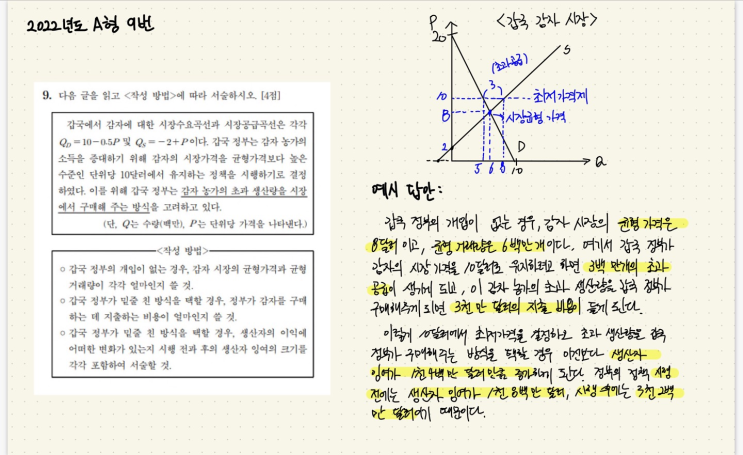 2022년도 A형 9번
9. 다음 글을 읽고 <작성 방법>에 따라 서술하시오. [4점]
갑국에서 감자에 대한 시장수요곡선과 시장공급곡선은 각각
Q_D=10-0.5P 및 Q_S=-2+P이다. 갑국 정부는 감자 농가의
소득을 증대하기 위해 감자의 시장가격을 균형가격보다 높은
수준인 단위당 10달러에서 유지하는 정책을 시행하기로 결정
하였다. 이를 위해 갑국 정부는 감자 농가의 초과 생산량을 시장
에서 구매해 주는 방식을 고려하고 있다.
(단, Q는 수량(백만), P는 단위당 가격을 나타낸다.)
<작성 방법>
○ 갑국 정부의 개입이 없는 경우, 감자 시장의 균형가격과 균형
거래량이 각각 얼마인지 쓸 것.
○ 갑국 정부가 밑줄 친 방식을 택할 경우, 정부가 감자를 구매
하는 데 지출하는 비용이 얼마인지 쓸 것.
○ 갑국 정부가 밑줄 친 방식을 택할 경우, 생산자의 이익에
어떠한 변화가 있는지 시행 전과 후의 생산자 잉여의 크기를
각각 포함하여 서술할 것.
<갑국 감자 시장>
P
20
S
(초과공급)
3
10
최저가격제
8
시장균형 가격
2
D
Q
5 6 8 10
예시 답안:
갑국 정부의 개입이 없는 경우, 감자 시장의 균형가격은
8달러이고, 균형 거래량은 6백만개이다. 여기서 갑국 정부가
감자의 시장 가격을 10달러로 유지하려고 하면 3백만개의 초과
공급이 생기게 되고, 이 감자 농가의 초과 생산량을 갑국 정부가
구매해주게 되면 3천만 달러의 지출 비용이 들게 된다.
이렇게 10달러에서 최저가격을 설정하고 초과 생산량을 갑국
정부가 구매해주는 방식을 택할 경우 이전보다 생산자
잉여가 1천 4백만 달러만큼 증가하게 된다. 정부의 정책 시행
전에는 생산자 잉여가 1천 8백만 달러, 시행 후에는 3천 2백
만 달러이기 때문이다.